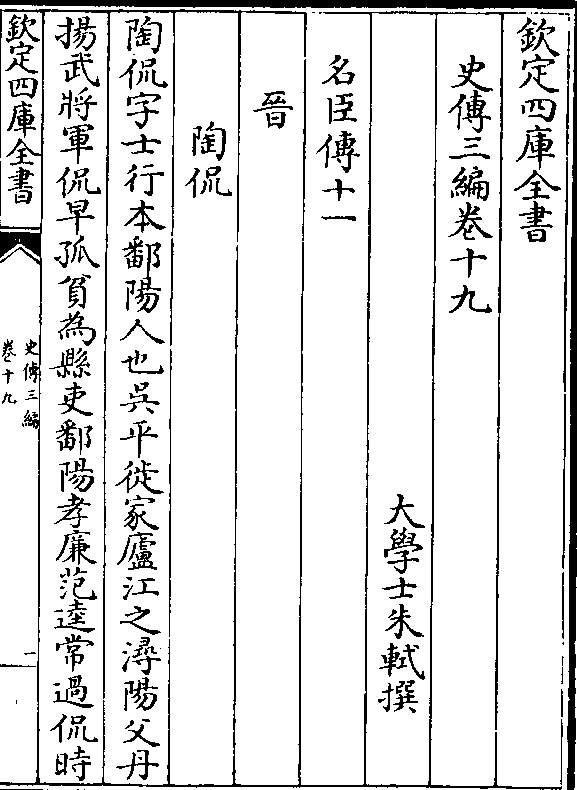 欽定四庫全書
史傳三編卷十九
大學士朱軾撰
名臣傳十一
晉
陶侃
陶侃字士行本鄱陽人也吳平徙家廬江之潯陽父丹
揚武將軍侃早孤貧為縣吏鄱陽孝廉范逵常過侃時
欽定四庫全書
史傳三編
卷十九
一